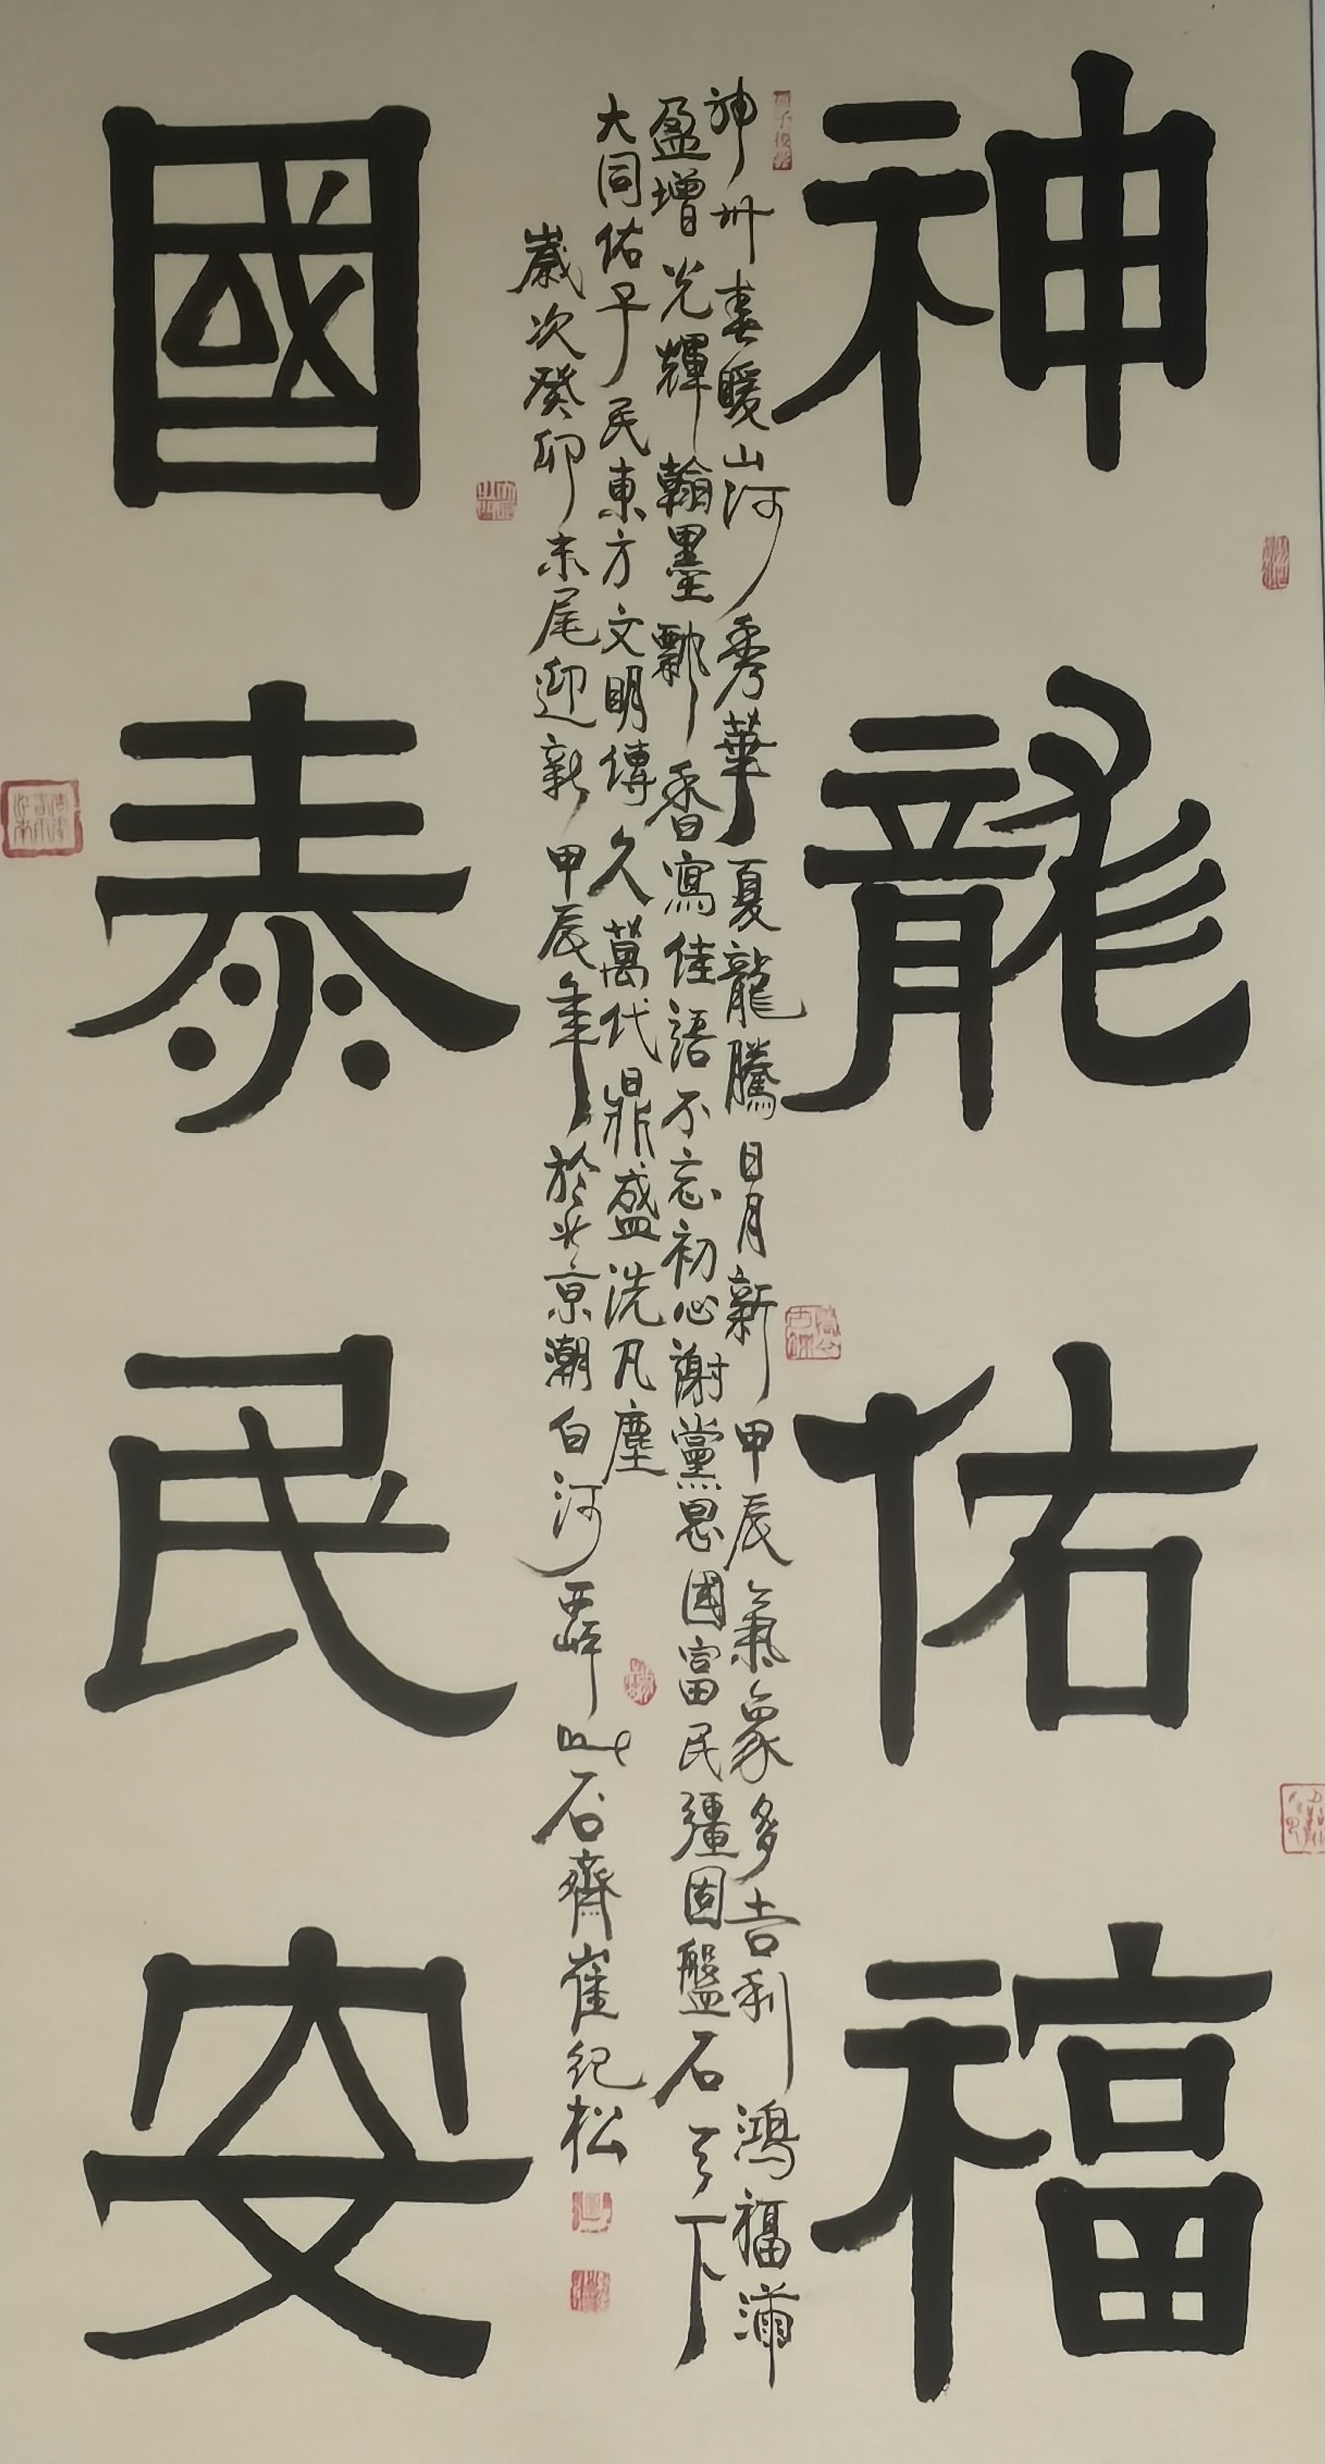 神龍佑福
神州春暖山河秀華夏龍騰日月新甲辰氣象多吉利鴻福滿
盈增光輝翰墨飄香寫佳語不忘初心謝黨恩國富民彊固盤石天下
大同佑子民東方文明傳久萬代鼎盛洗凡塵
歲次癸卯末尾迎新甲辰年於北京潮白河西岸 石齋崔紀松
國泰民安